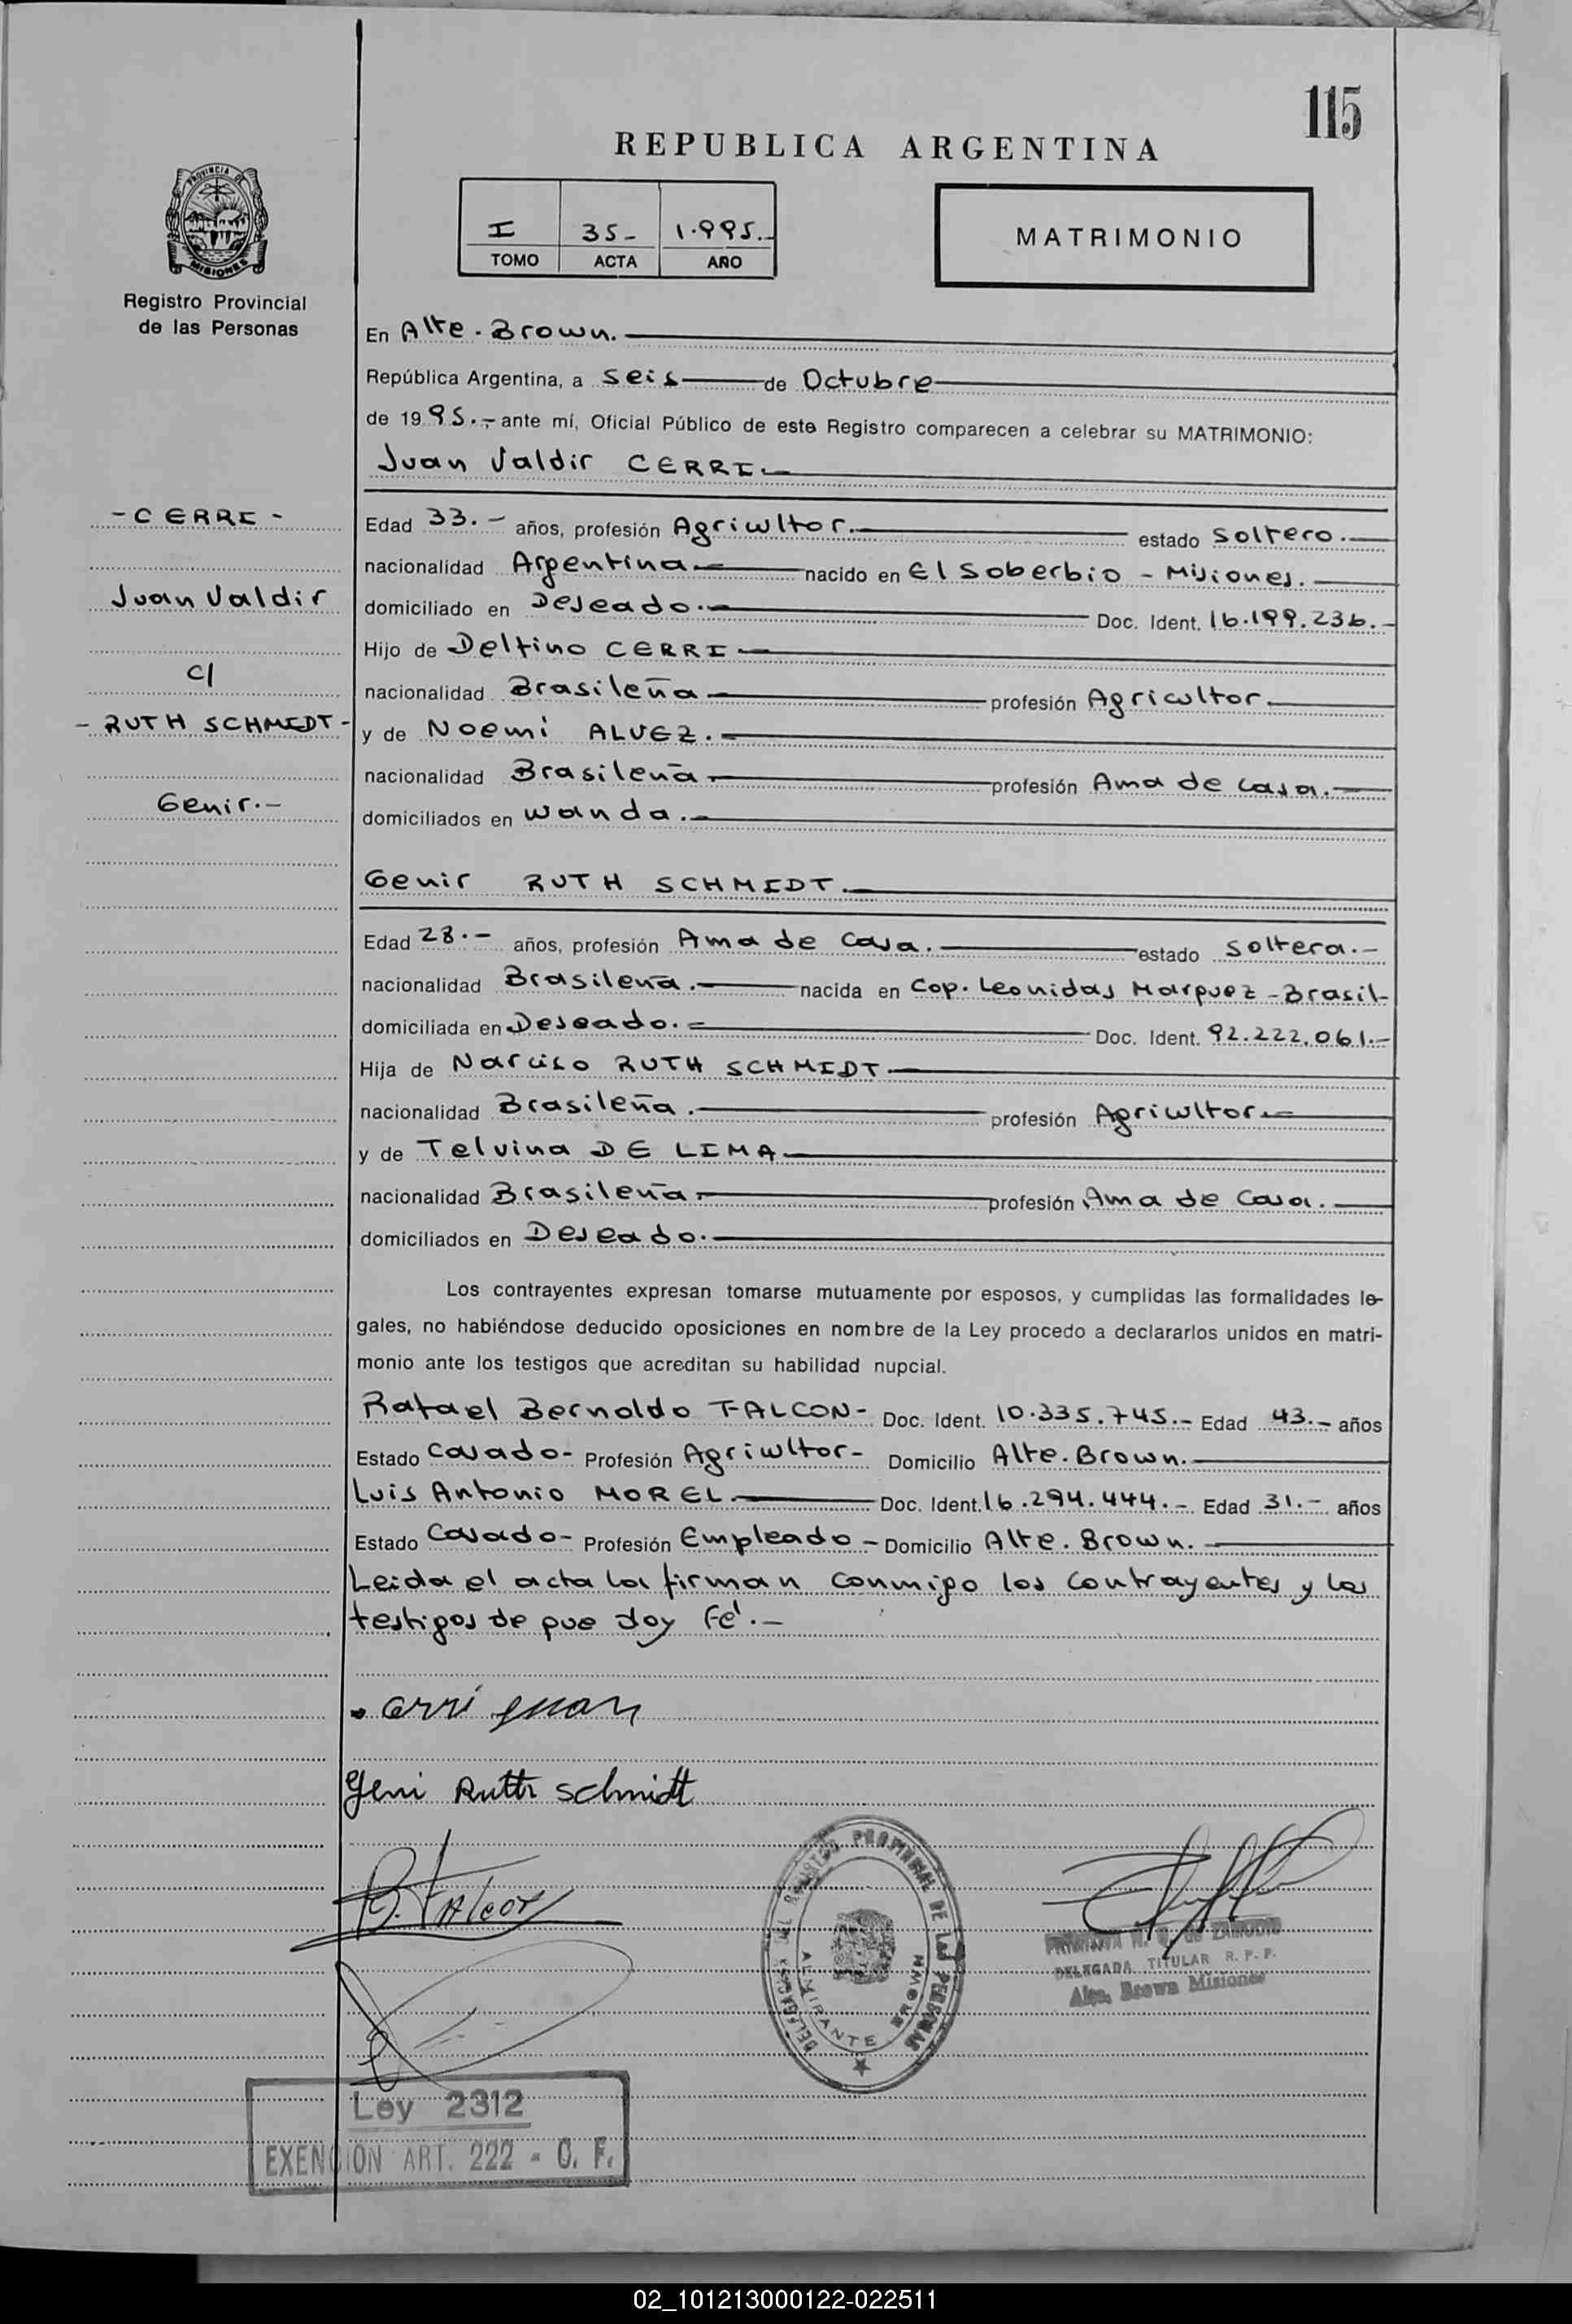 115
REPUBLICA ARGENTINA
PROVINCIA DE
MISIONES
Registro Provincial
de las Personas
I 35- 1.995.-
TOMO ACTA AÑO
MATRIMONIO
En Alte. Brown.
República Argentina, a seis de Octubre
de 1995.- ante mí, Oficial Público de este Registro comparecen a celebrar su MATRIMONIO:
Juan Valdir CERRI.
- CERRI -
Juan Valdir
c/
- RUTH SCHMIDT -
Genir.-
Edad 33.- años, profesión Agricultor. estado soltero.
nacionalidad Argentina nacido en El Soberbio - Misiones.
domiciliado en Deseado. Doc. Ident. 16.199.236.-
Hijo de Delfino CERRI
nacionalidad Brasileña profesión Agricultor.
y de Noemí ALVEZ.
nacionalidad Brasileña profesión Ama de casa.
domiciliados en Wanda.
Genir RUTH SCHMIDT.
Edad 28.- años, profesión Ama de casa. estado soltera.-
nacionalidad Brasileña. nacida en Cap. Leonidas Marquez - Brasil-
domiciliada en Deseado. Doc. Ident. 92.222.061.-
Hija de Narciso RUTH SCHMIDT.
nacionalidad Brasileña. profesión Agricultor.
y de Telvina DE LIMA
nacionalidad Brasileña profesión Ama de Casa.
domiciliados en Deseado.
Los contrayentes expresan tomarse mutuamente por esposos, y cumplidas las formalidades le-
gales, no habiéndose deducido oposiciones en nombre de la Ley procedo a declararlos unidos en matri-
monio ante los testigos que acreditan su habilidad nupcial.
Rafael Bernoldo FALCON- Doc. Ident. 10.335.745.- Edad 43.- años
Estado Casado- Profesión Agricultor- Domicilio Alte. Brown.
Luis Antonio MOREL. Doc. Ident. 16.294.444.- Edad 31.- años
Estado Casado- Profesión Empleado- Domicilio Alte. Brown.
Leida el acta la firman conmigo los contrayentes y los
testigos de que doy Fé.-
Cerri Juan
Geni Ruth Schmidt
R. Falcon
DELEGACION DEL REGISTRO PROVINCIAL DE LAS PERSONAS
ALMIRANTE BROWN
DE ZAMUDIO
DELEGADA TITULAR R. P. P.
Alte. Brown Misiones
Ley 2312
EXENCIÓN ART. 222 - C. F.
02_101213000122-022511